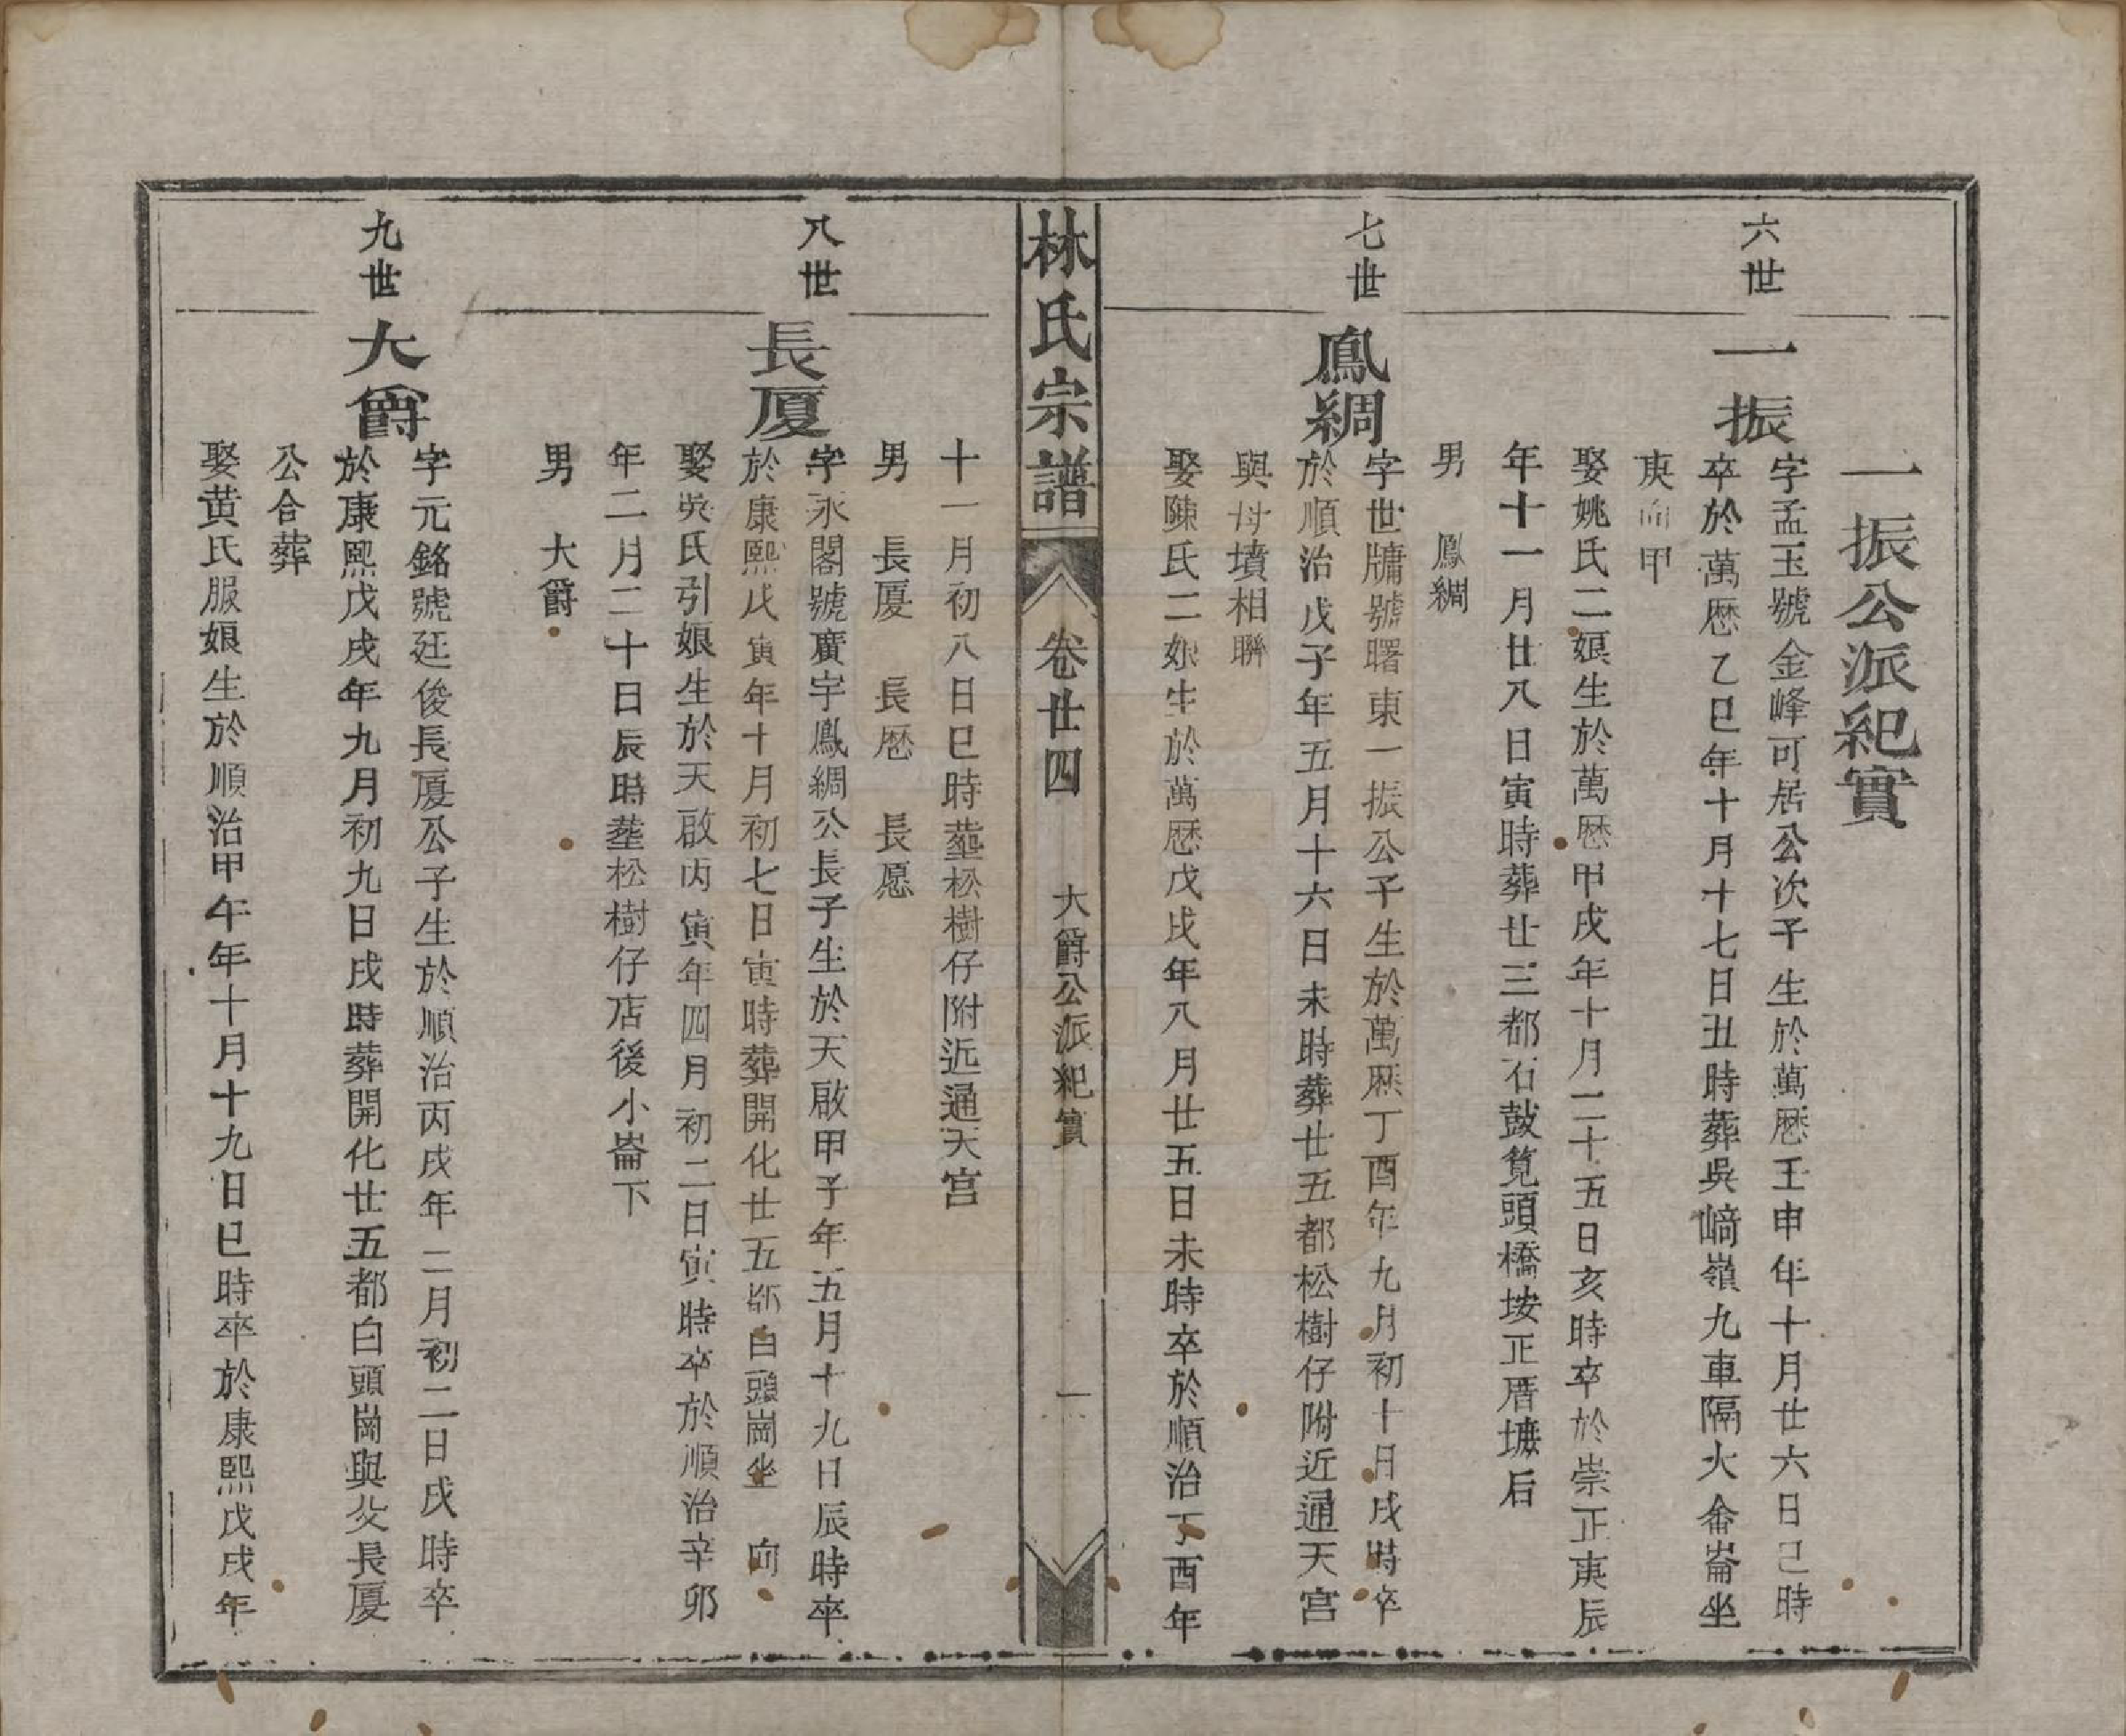 一振公派紀實
六世
一振
字孟玉號金峰可居公次子生於萬厯壬申年十月廿六日巳時
卒於萬厯乙巳年十月十七日丑時葬吳崎嶺九車隔大畲崙坐
庚向甲
娶姚氏二娘生於萬厯甲戌年十月二十五日亥時卒於崇正庚辰
年十一月廿八日寅時葬廿三都石鼓筧頭橋垵正厝墘后
男　鳳綢
七世
鳳綢
字世牗號曙東一振公子生於萬厯丁酉年九月初十日戌時卒
於順治戊子年五月十六日未時葬廿五都松樹仔附近通天宮
與母墳相聯
娶陳氏二娘生於萬厯戊戌年八月廿五日未時卒於順治丁酉年
林氏宗譜
卷廿四
大爵公派紀實
一
十一月初八日巳時塟松樹仔附近通天宮
男　長厦　長厯　長愿
八世
長厦
字永閣號廣宇鳳綢公長子生於天啟甲子年五月十九日辰時卒
於康熙戊寅年十月初七日寅時葬開化廿五都白頭崗坐　向
娶吳氏引娘生於天啟丙寅年四月初二日寅時卒於順治辛卯
年二月二十日辰時塟松樹仔店後小崙下
男　大爵
九世
大爵
字元銘號廷俊長厦公子生於順治丙戌年二月初二日戌時卒
於康熙戊戌年九月初九日戌時葬開化廿五都白頭崗與父長厦
公合葬
娶黄氏服娘生於順治甲午年十月十九日巳時卒於康熙戊戌年